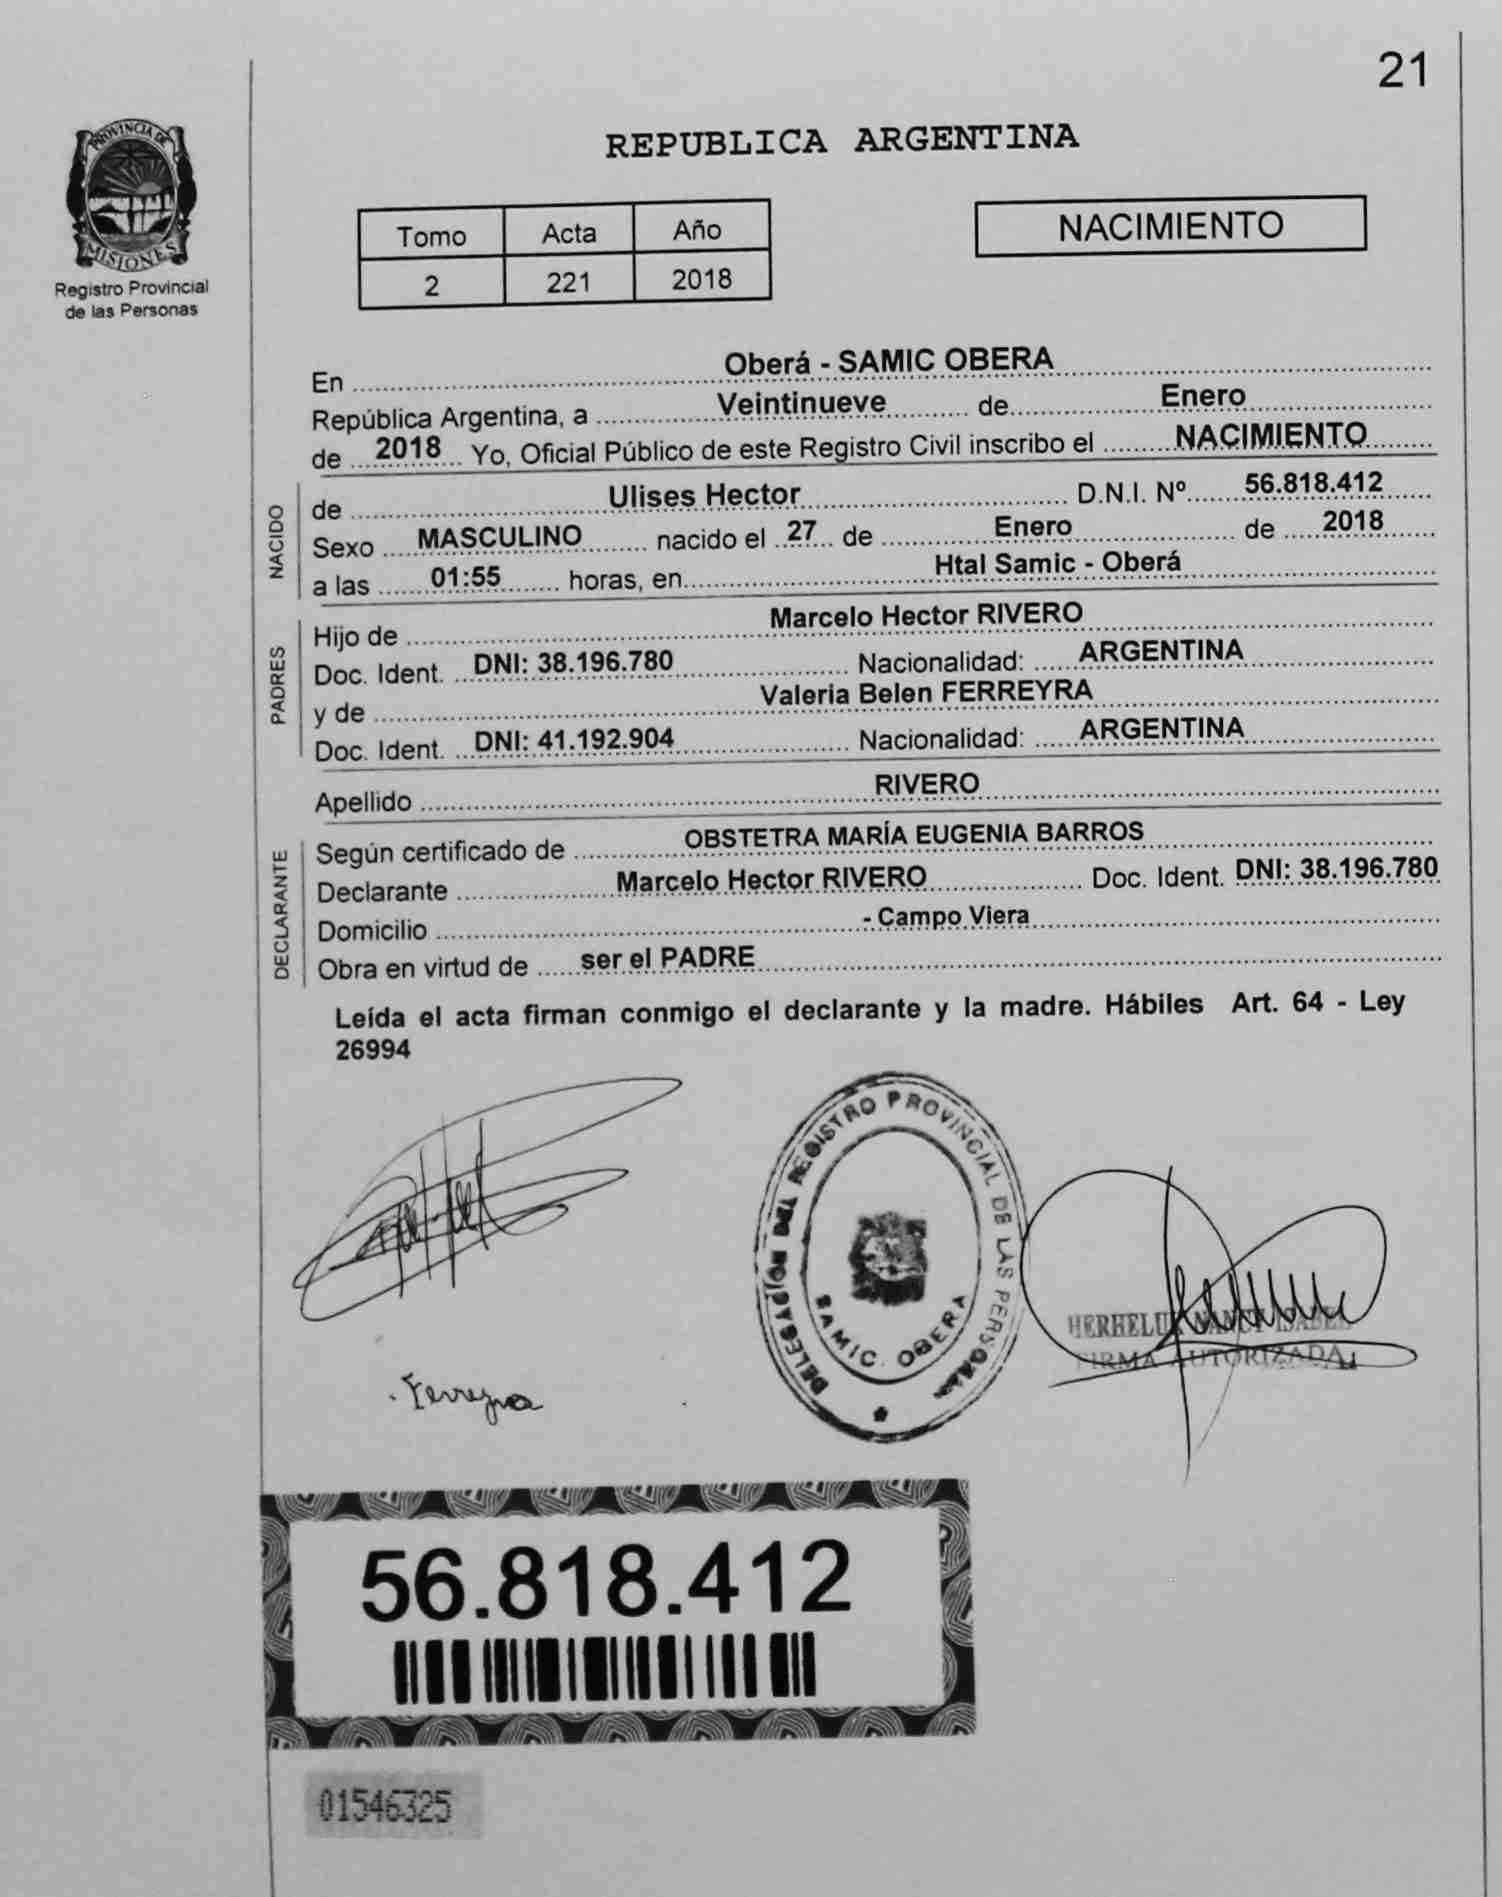 21
PROVINCIA DE
MISIONES
Registro Provincial
de las Personas
REPUBLICA ARGENTINA
Tomo Acta Año
2 221 2018
NACIMIENTO
En Oberá - SAMIC OBERA
República Argentina, a Veintinueve de Enero
de 2018 Yo, Oficial Público de este Registro Civil inscribo el NACIMIENTO
NACIDO
de Ulises Hector D.N.I. Nº 56.818.412
Sexo MASCULINO nacido el 27 de Enero de 2018
a las 01:55 horas, en Htal Samic - Oberá
PADRES
Hijo de Marcelo Hector RIVERO
Doc. Ident. DNI: 38.196.780 Nacionalidad: ARGENTINA
y de Valeria Belen FERREYRA
Doc. Ident. DNI: 41.192.904 Nacionalidad: ARGENTINA
Apellido RIVERO
DECLARANTE
Según certificado de OBSTETRA MARÍA EUGENIA BARROS
Declarante Marcelo Hector RIVERO Doc. Ident. DNI: 38.196.780
Domicilio - Campo Viera
Obra en virtud de ser el PADRE
Leída el acta firman conmigo el declarante y la madre. Hábiles Art. 64 - Ley
26994
DELEGACION DEL REGISTRO PROVINCIAL DE LAS PERSONAS
SAMIC. OBERA
NANCY ISABEL
FIRMA AUTORIZADA
Ferreyra
56.818.412
01546325